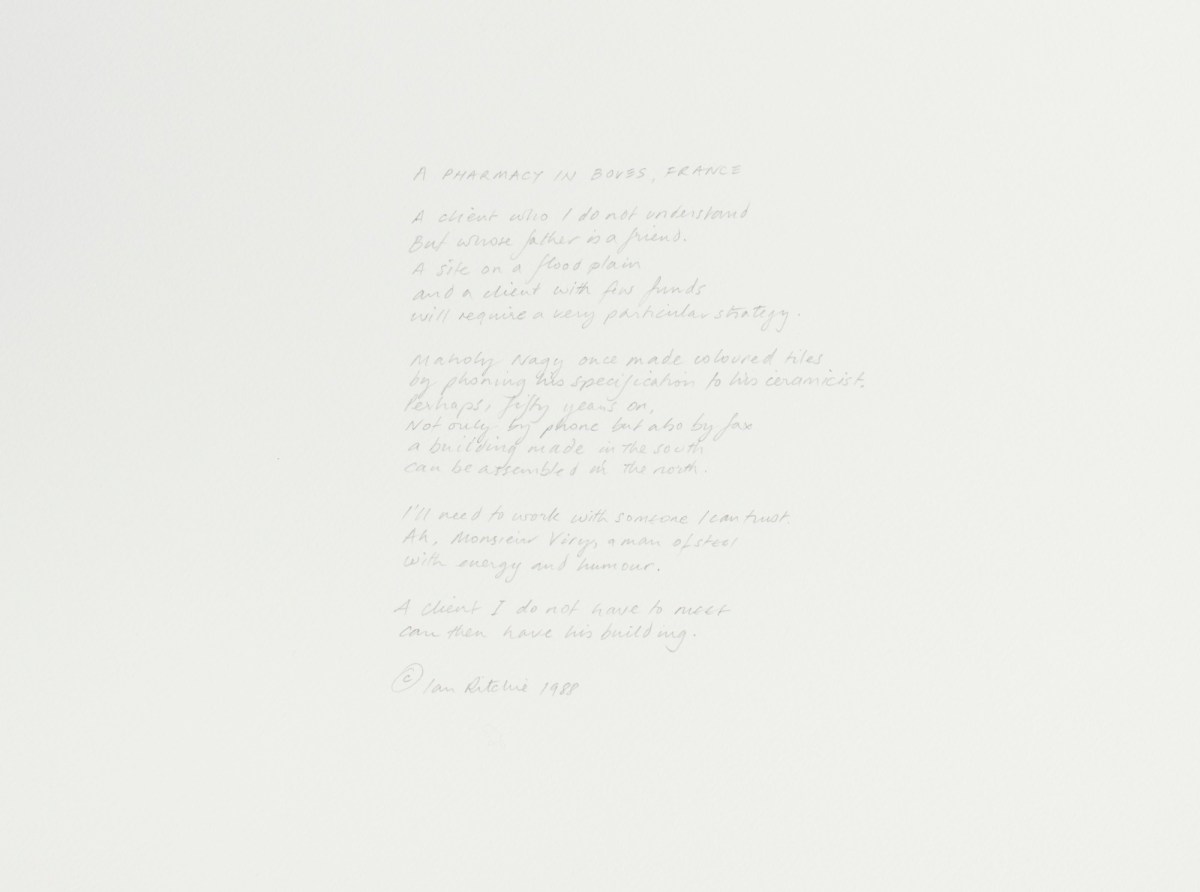 A PHARMACY IN BOVES, FRANCE
A client who I do not understand
But whose father is a friend.
A site on a flood plain
and a client with few funds
will require a very particular strategy.
Maholy Nagy once made coloured tiles
by phoning his specification to his ceramicist.
Perhaps, fifty years on,
Not only by phone but also by fax
a building made in the south
can be assembled in the north.
I'll need to work with someone I can trust.
Ah, Monsieur Viry, a man of steel
with energy and humour.
A client I do not have to meet
can then have his building.
© Ian Ritchie 1988